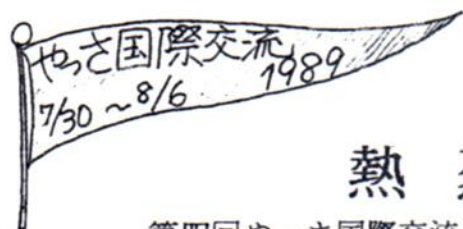 やっさ国際交流
1989
7/30～8/6
熱
第四回やっさ国際交流